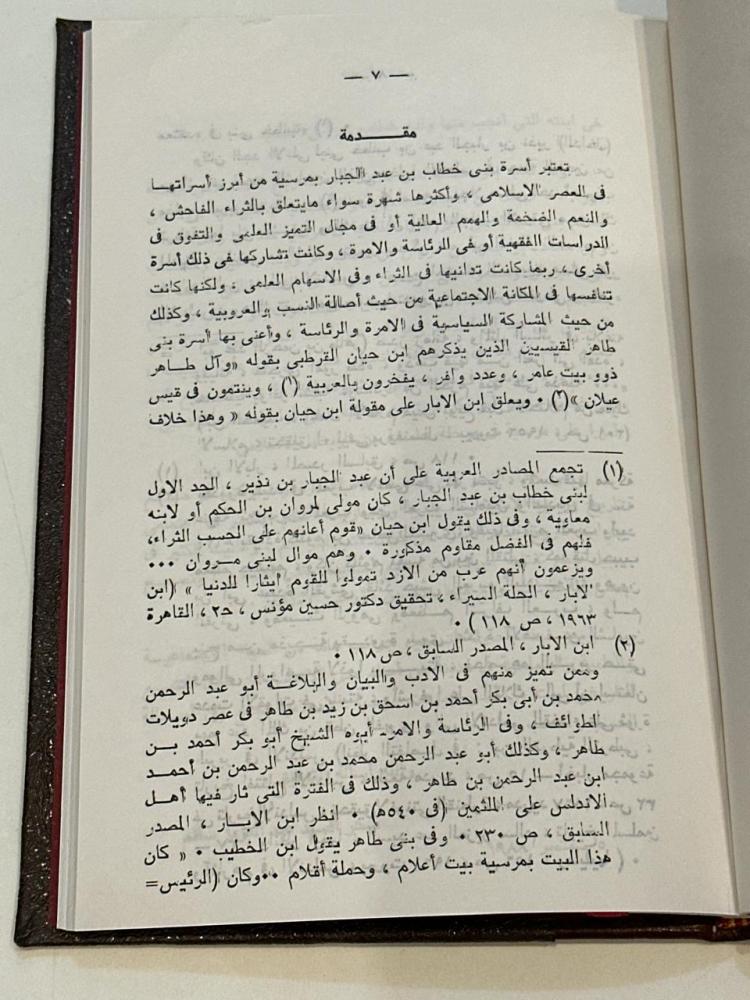 — ٧ —
مقـــــدمة
تعتبر أسرة بنى خطاب بن عبد الجبار بمرسية من أبرز أسراتهـا
فى العصر الاسلامى ، وأكثرها شهرة سواء مايتعلق بالثراء الفاحش ،
والنعم الضخمة والهمم العالية أو فى مجال التميز العلمى والتفوق فى
الدراسات الفقهية أو فى الرئاسة والامرة ، وكانت تشاركها فى ذلك أسرة
أخرى ، ربما كانت تدانيها فى الثراء وفى الاسهام العلمى ، ولكنها كانت
تنافسها فى المكانة الاجتماعية من حيث أصالة النسب والعروبية ، وكذلك
من حيث المشاركة السياسية فى الامرة والرئاسة ، وأعنى بها أسرة بنى
طاهر القيسيين الذين يذكرهم ابن حيان القرطبى بقوله «وآل طـاهر
ذوو بيت عامر ، وعدد وافر ، يفخرون بالعربية (١) ، وينتمون فى قيس
عيلان »(٢) ٠ ويعلق ابن الابار على مقولة ابن حيان بقوله « وهذا خلاف
(١) تجمع المصادر العربية على أن عبد الجبار بن نذير ، الجد الاول
لبنى خطاب بن عبد الجبار ، كان مولى لمروان بن الحكم أو لابنه
معاوية ، وفى ذلك يقول ابن حيان «قوم أعانهم على الحسب الثراء،
فلهم فى الفضل مقاوم مذكورة ٠ وهم موال لبنى مـروان ٠٠٠
ويزعمون أنهم عرب من الازد تمولوا للقوم ايثارا للدنيا » (ابن
الابار ، الحلة السيراء ، تحقيق دكتور حسين مؤنس ، ح٢ ، القاهرة
١٩٦٣ ، ص ١١٨ ) ٠
(٢) ابن الابار ، المصدر السابق ، ص ١١٨ ٠
وممن تميز منهم فى الادب والبيان والبلاغـة أبو عبد الرحمن
محمد بن أبى بكر أحمد بن اسحق بن زيد بن طاهر فى عصر دويلات
الطوائف ، وفى الرئاسة والامر أبوه الشيخ أبو بكر أحمد بـن
طاهر ، وكذلك أبو عبد الرحمن محمد بن عبد الرحمن بن أحمـد
ابن عبد الرحمن بن طاهر ، وذلك فى الفترة التى ثار فيها أهـل
الاندلس على الملثمين (فى ٥٤٠ه) ٠ انظر ابن الابـار ، المصدر
السابق ، ص ٢٣٠ ٠ وفى بنى طاهر يقول ابن الخطيب ٠ « كان
هذا البيت بمرسية بيت أعلام ، وحملة أقلام ٠٠وكان (الرئيس=